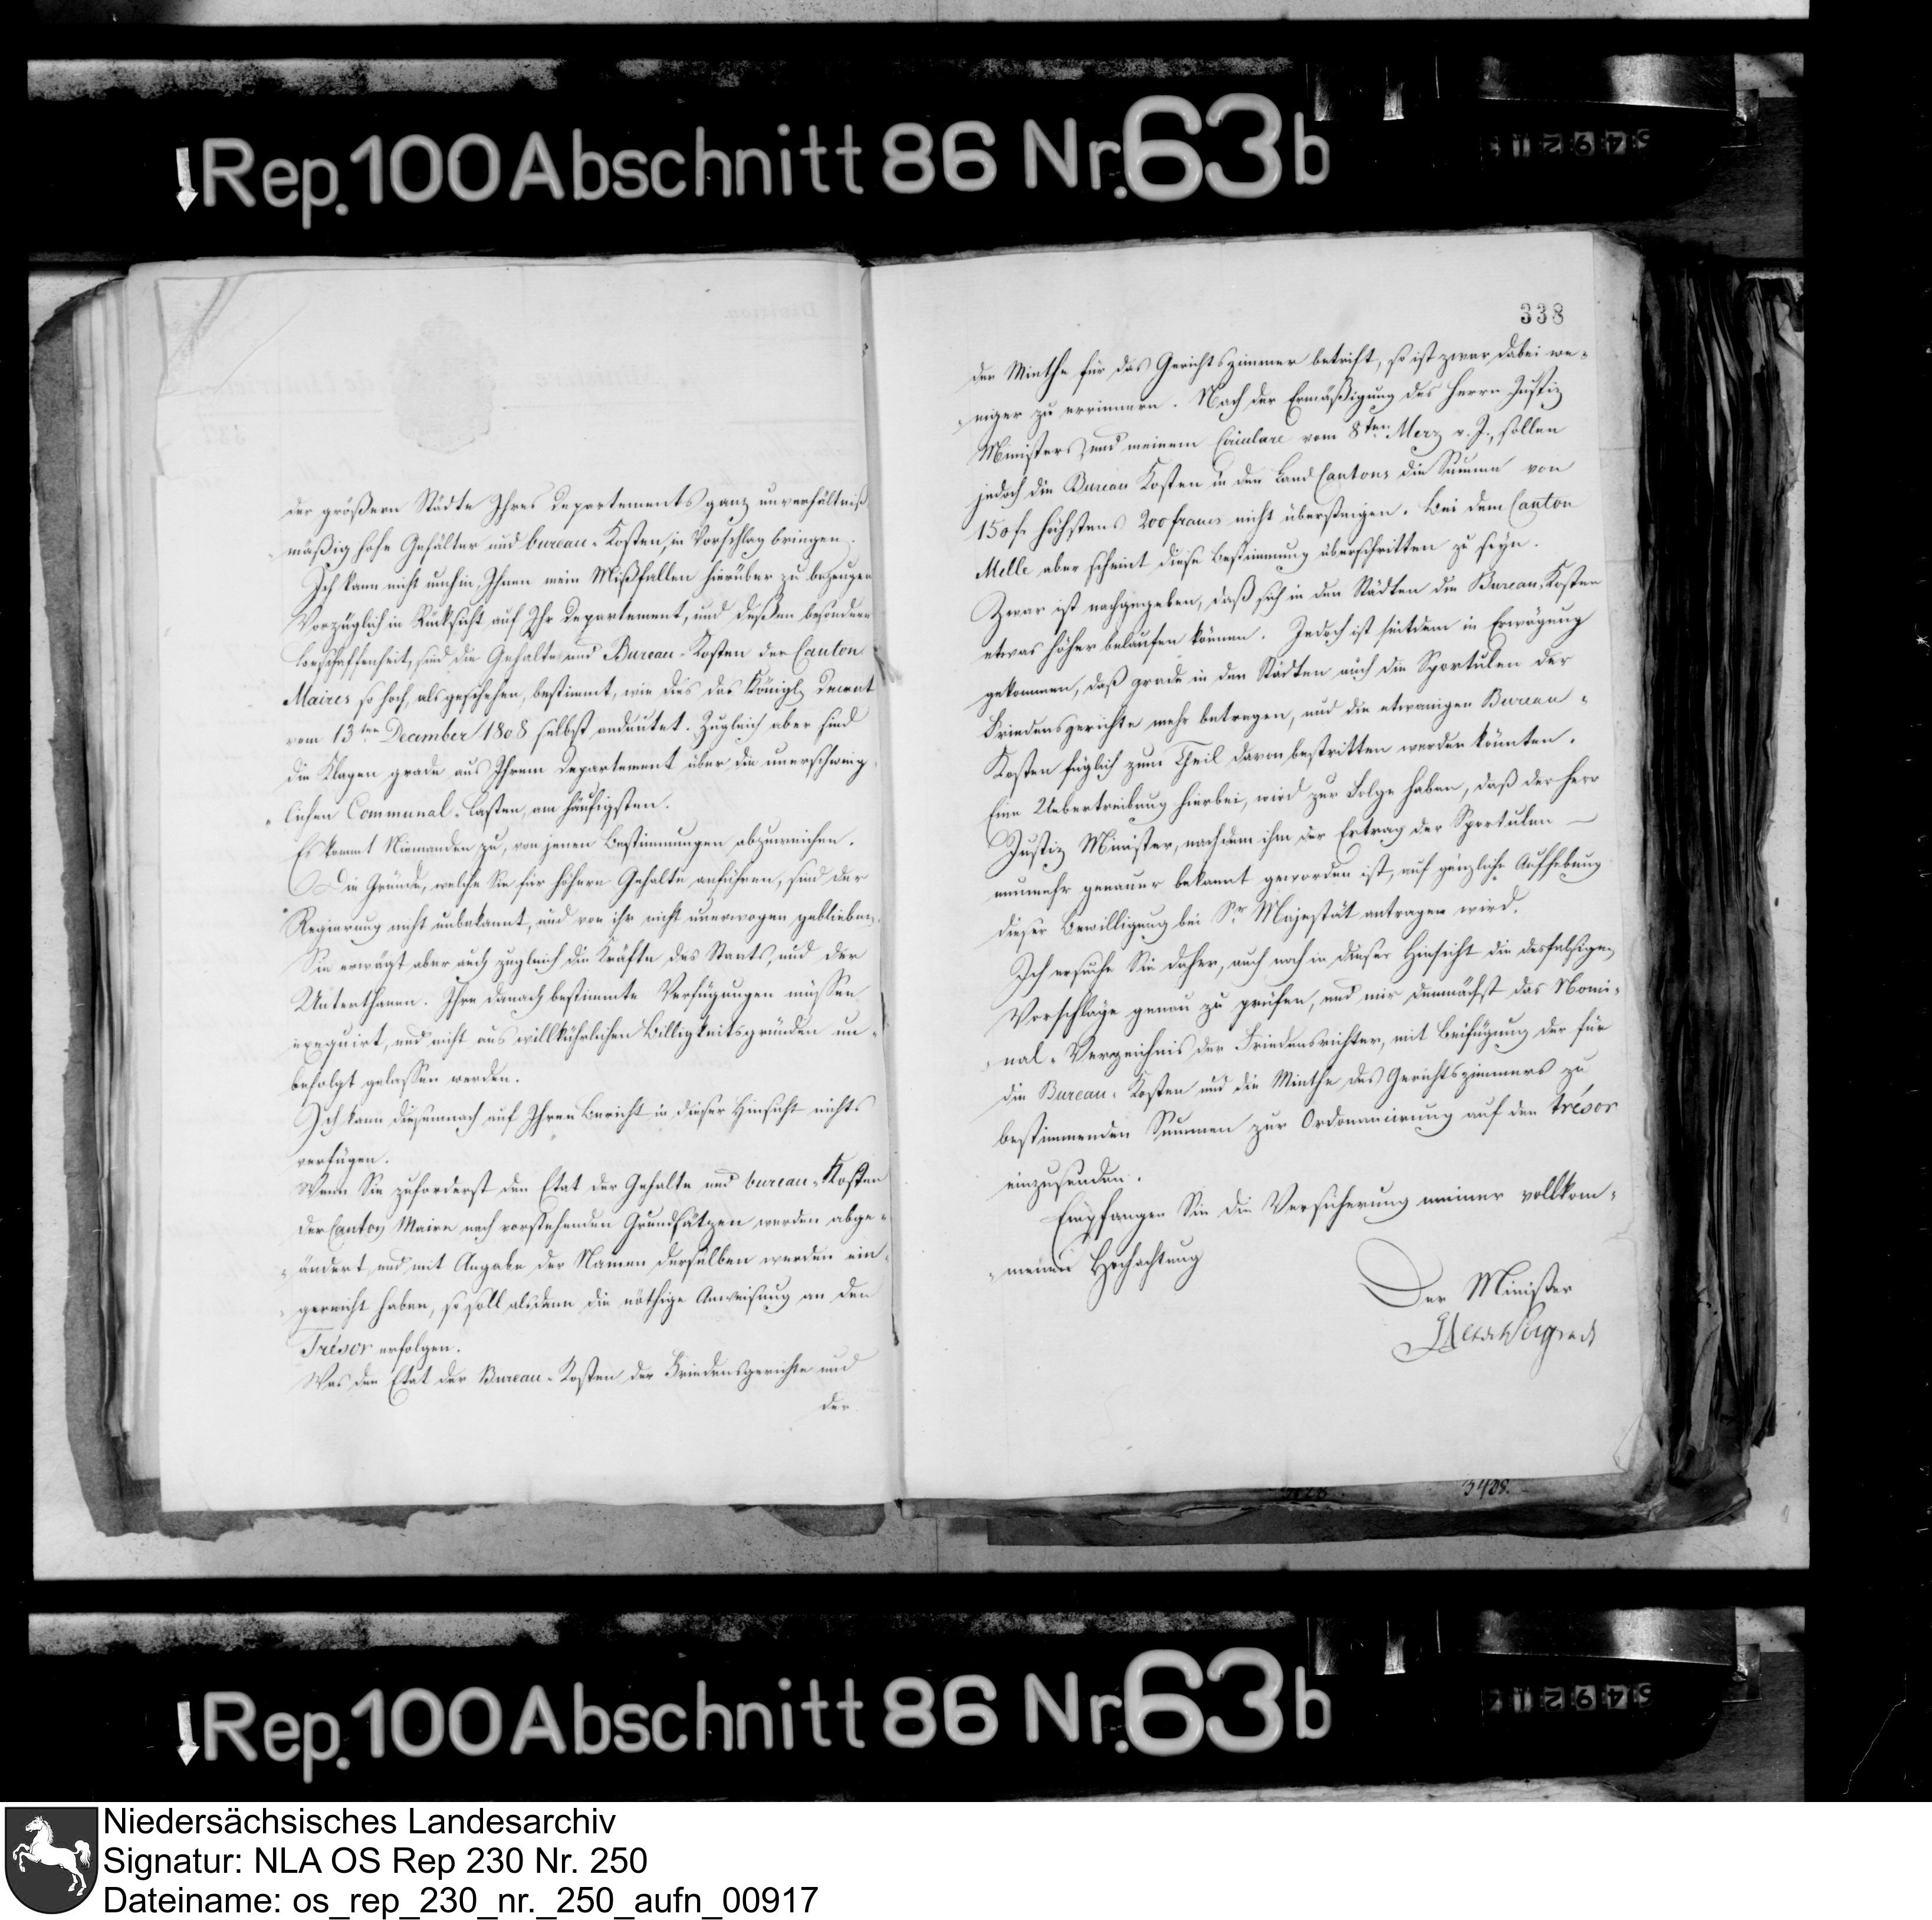 Rep. 100 Abschnitt 86 Nr. 63 b
der größern Städte Ihres Departements ganz unverhältniß
mäßig hohe Gehälter und bureau-Kosten, in Vorschlag bringen.
Ich kann nicht umhin, Ihnen mein Mißfallen hierüber zu bezeugen
Vorzüglich in Rücksicht auf Ihr Departement, und deßen besondere
Beschaffenheit, sind die Gehalte und Bureau-Kosten der Canton
Maires so hoch, als geschehen, bestimmt, wie dies das Königl. Decret
vom 13ten December 1808 selbst andeutet. Zugleich aber sind
die Klagen grade aus Ihrem Departement über die unerschwing
lichen Communal-Lasten, am häufigsten.
Es kommt Niemanden zu, von jenen Bestimmungen abzuweichen.
Die Gründe, welche Sie für höhere Gehalte anführen, sind der
Regierung nicht unbekannt, und von ihr nicht unerwogen geblieben.
Sie erwägt aber auch zugleich die Kräfte des Staats, und der
Unterthanen. Ihre danach bestimmte Verfügungen müssen
exequirt, und nicht aus willkührlichen Billigkeitsgründen un-
befolgt gelassen werden.
Ich kann diesemnach auf Ihren Bericht in dieser Hinsicht nichts
verfügen.
Wenn Sie zuforderst den Etat der Gehalte und bureau-Kosten
der Canton Maire nach vorstehenden Grundsätzen werden abge-
ändert, und mit Angabe der Namen derselben werden ein-
gereicht haben, so soll alsdann die nöthige Anweisung an den
Trésor erfolgen.
Was den Etat der Bureau-Kosten der Friedensgerichte und
der
338
der Miethe für das Gerichtszimmer betrift, so ist zwar dabei we-
niger zu erinnern. Nach der Ermäßigung des Herrn Justiz
Ministers, und meinem Circulare vom 8ten Merz v. J., sollen
jedoch die Bureau Kosten in den Land Cantons die Summe von
150 fr höchstens 200 francs nicht übersteigen. Bei dem Canton
Melle aber scheint diese Bestimmung überschritten zu seyn.
Zwar ist nachgegeben, daß sich in den Städten die Bureau-Kosten
etwas höher belaufen können. Jedoch ist seitdem in Erwägung
gekommen, daß grade in den Städten auch die Sportulen der
Friedensgerichte mehr betragen, und die etwanigen Bureau-
Kosten füglich zum Theil davon bestritten werden könnten.
Eine Uebertreibung hierbei, wird zur Folge haben, daß der Herr
Justiz Minister, nachdem ihm der Ertrag der Sportulen
nunmehr genauer bekannt geworden ist, auf gänzliche Aufhebung
dieser Bewilligung bei Sr Majestät antragen wird.
Ich ersuche Sie daher, auch noch in dieser Hinsicht die desfalsigen
Vorschläge genau zu prüfen, und mir demnächst das Nomi-
nal-Verzeichnis der Friedensrichter, mit Beifügung der für
die Bureau-Kosten und die Miethe des Gerichtszimmers zu
bestimmenden Summen zur Ordonnancirung auf den trésor
einzusenden.
Empfangen Sie die Versicherung meiner vollkom-
menen Hochachtung
Der Minister
5408.
Rep. 100 Abschnitt 86 Nr. 63 b
Niedersächsisches Landesarchiv
Signatur: NLA OS Rep 230 Nr. 250
Dateiname: os_rep_230_nr._250_aufn_00917